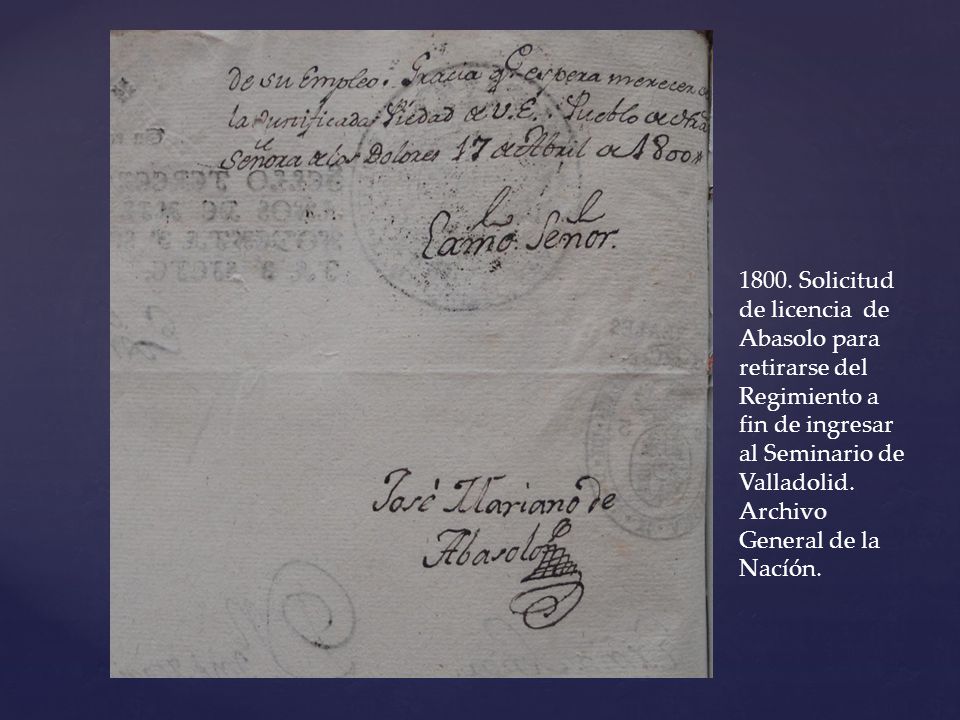 de su Empleo. Gracia q.e espera merecer
la Piedad de V.E. Pueblo de
Señora de los Dolores 17 de Abril de 1800
Exmo. Señor.
José Mariano de
Abasolo
1800. Solicitud
de licencia de
Abasolo para
retirarse del
Regimiento a
fin de ingresar
al Seminario de
Valladolid.
Archivo
General de la
Nacíón.